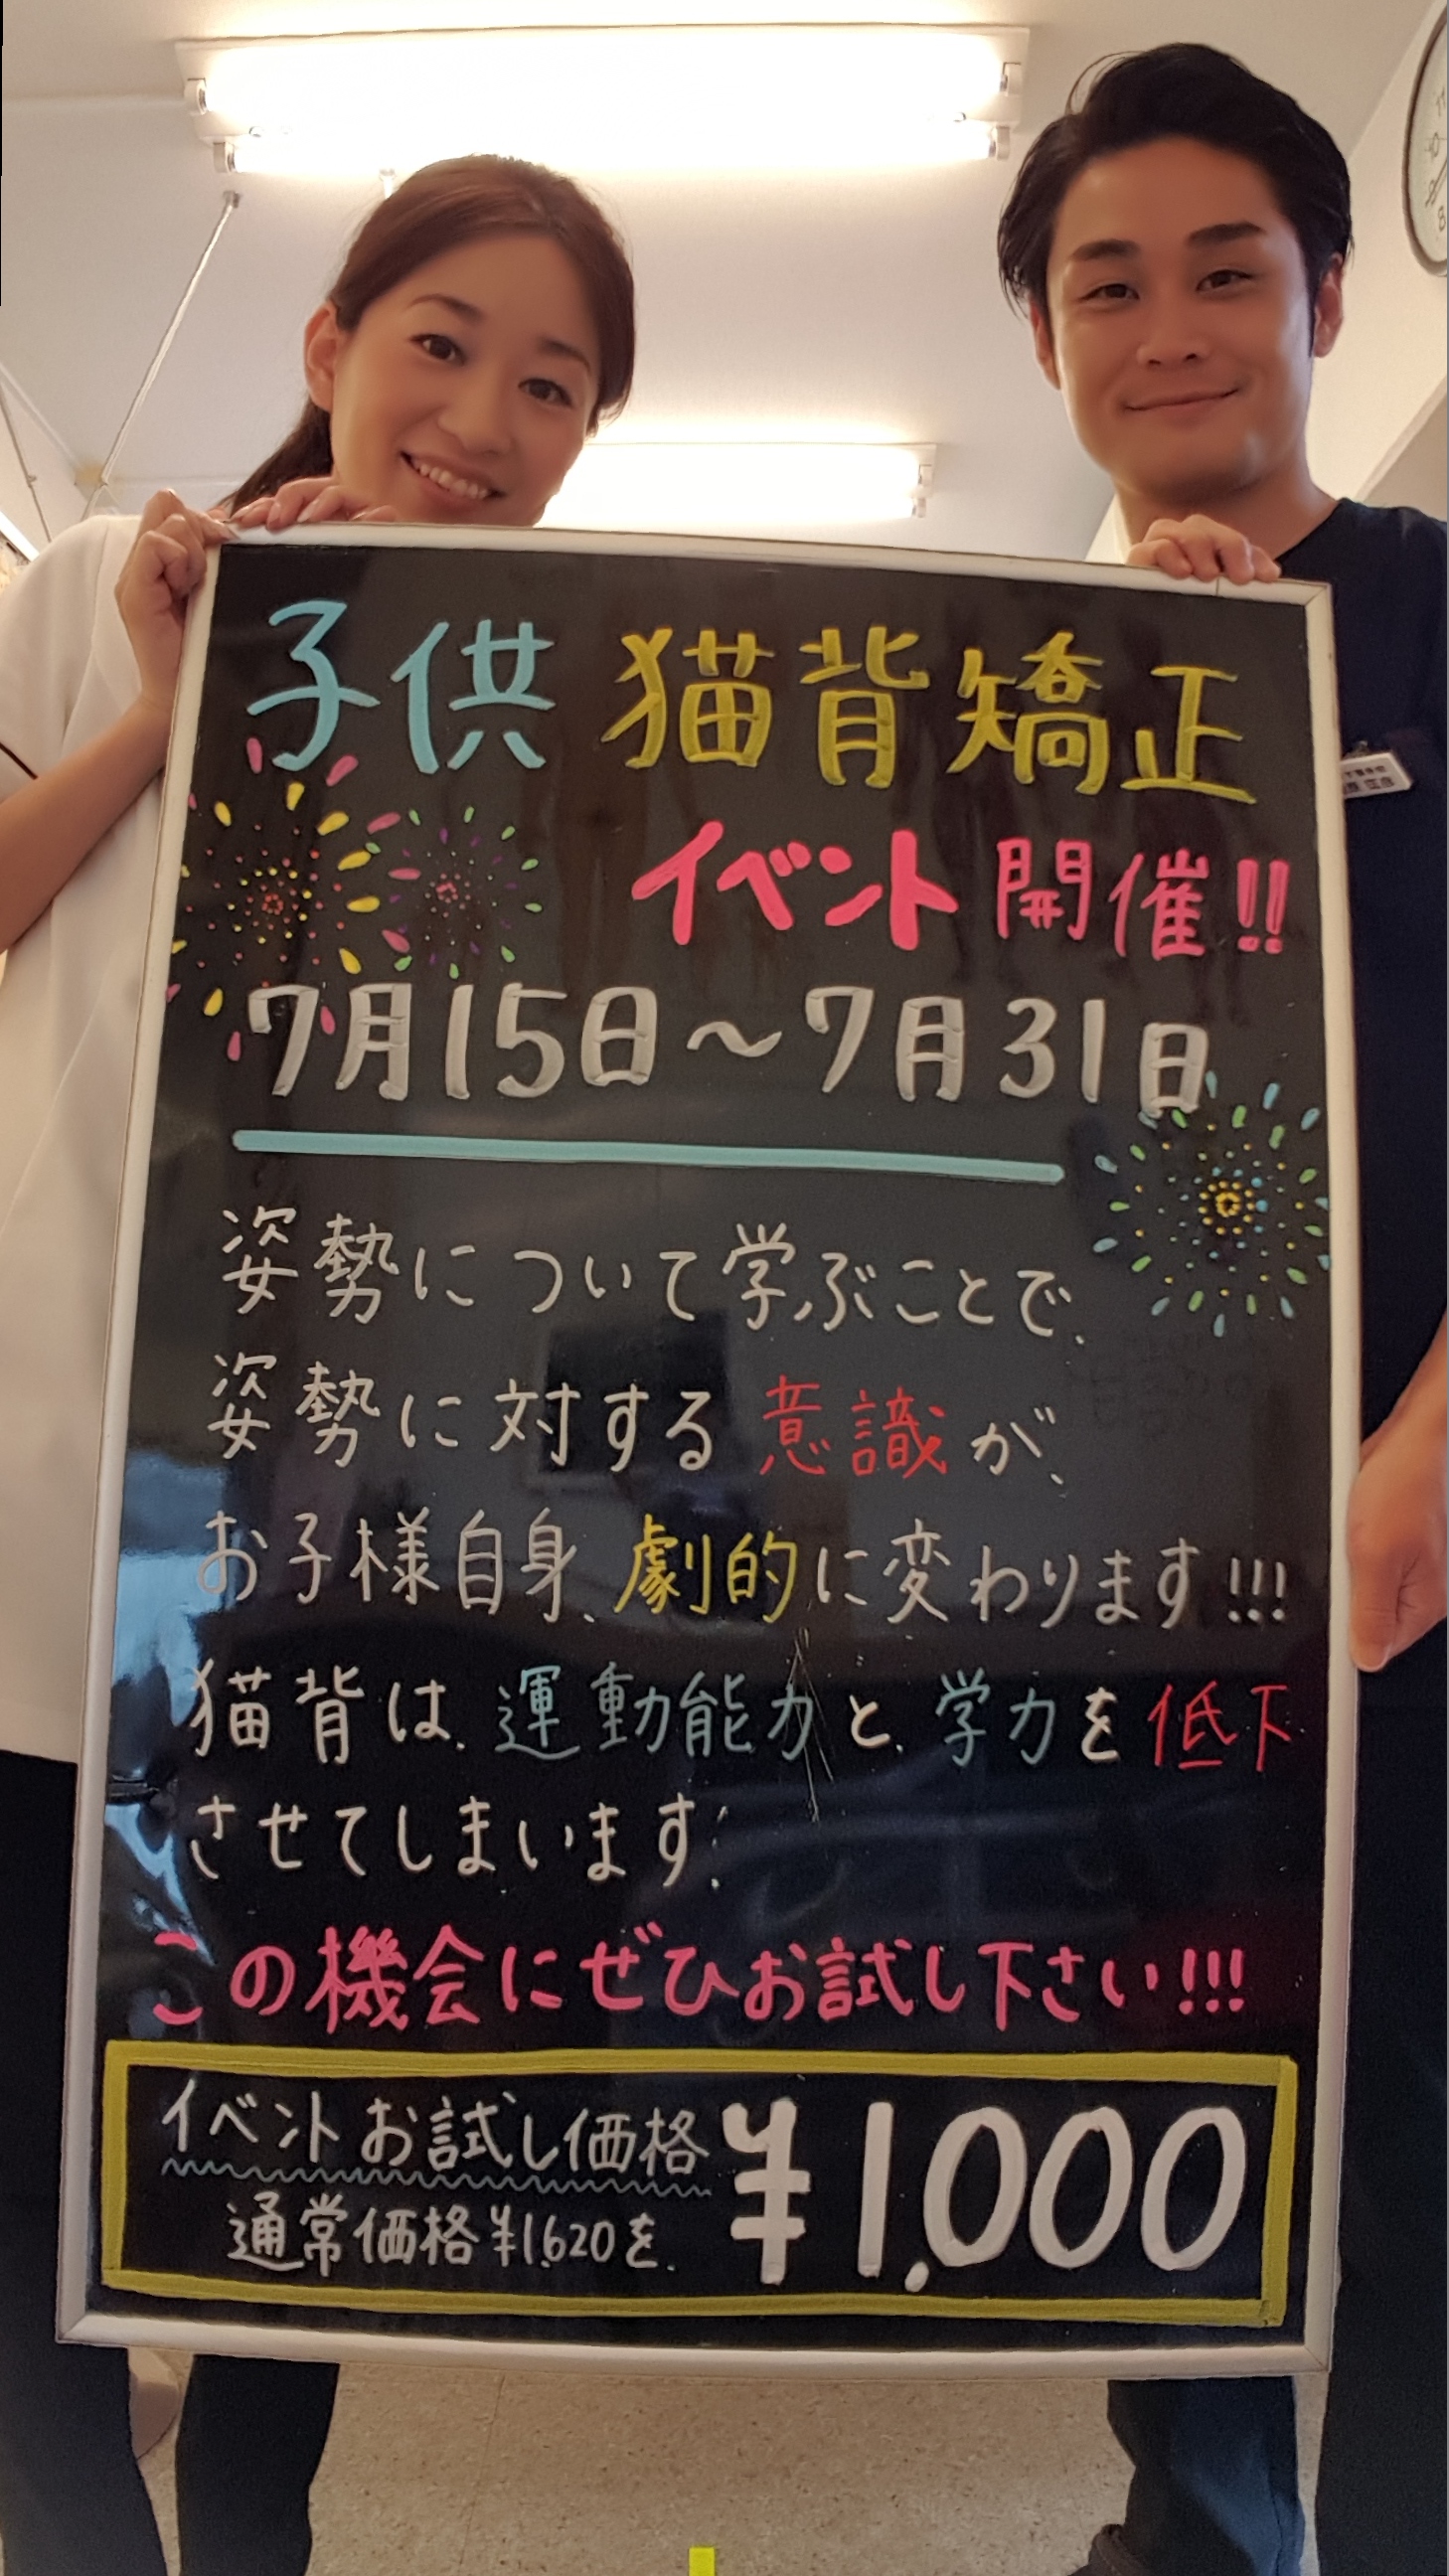 子供 猫背矯正
イベント開催!!
7月15日～7月31日
姿勢について学ぶことで、
姿勢に対する意識が、
お子様自身、劇的に変わります!!!
猫背は、運動能力と、学力を低下
させてしまいます!
この機会にぜひお試し下さい!!!
イベントお試し価格
通常価格¥1,620を、
¥1,000